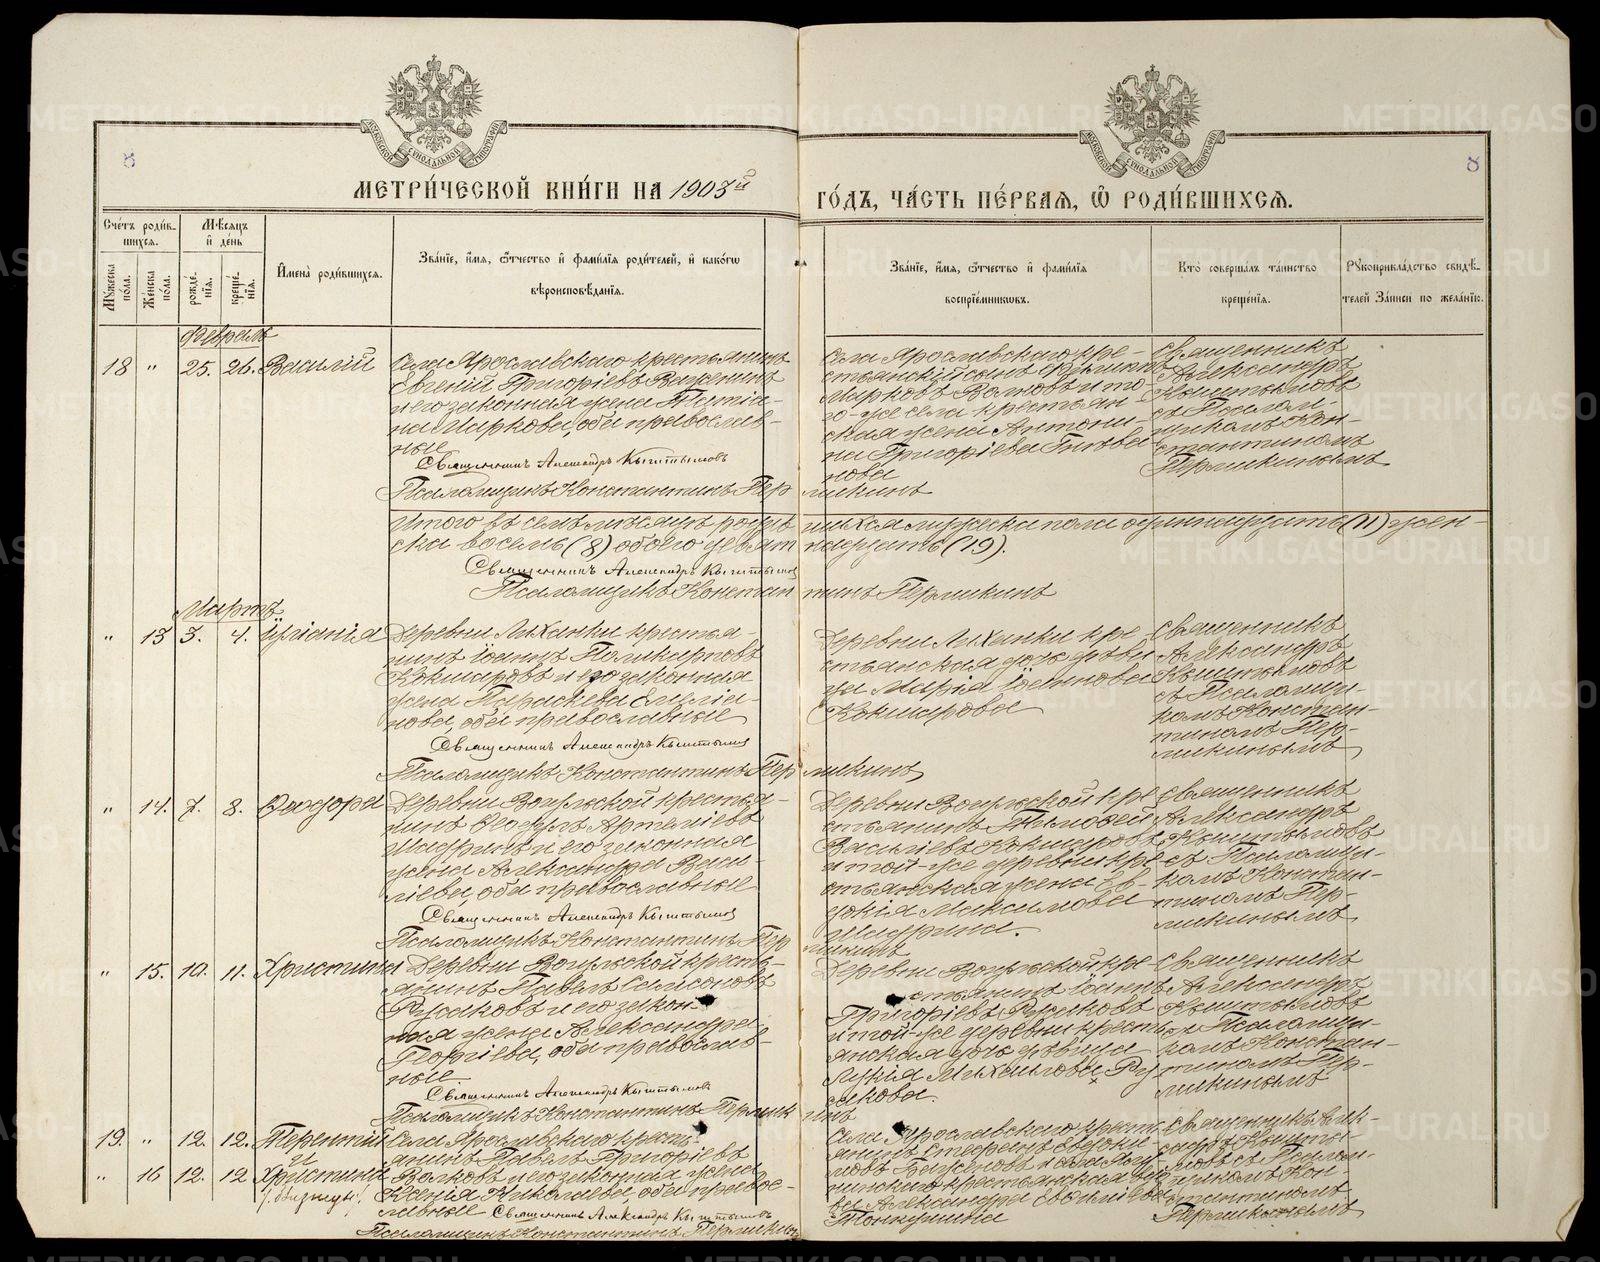 8
8
МЕТРИ́ЧЕСКОЙ КНИ́ГИ НА 1903й
ГО́ДЪ, ЧА́СТЬ ПЕ́РВАЯ, Ѡ РОДИ́ВШИХСЯ.
Сче́тъ роди́в-
шихся.
Мѣ́сяцъ
и́ де́нь
Му́жеска по́ла.
Же́нска по́ла.
рожде́нїя.
креще́нїя.
И́мена̀ роди́вшихся.
Зва́нїе, и́мя, ѻ́тчество и́ фами́лїя роди́телей, и́ како́гѡ
вѣроисповѣ́данїя.
Зва́нїе, и́мя, ѻ́тчество и́ фами́лїя
воспрїе́мниковъ.
Кто̀ соверша́лъ та́инство
креще́нїя.
Рꙋкоприкла́дство свидѣ́-
телей За́писи по жела́нїю.
Февраль
18 " 25. 26. Василій
Села Ярославскаго крестьянинъ
Евгеній Григоріевъ Важенинъ
и его законная жена Татіа-
на Маркова, оба православ-
ные
Священникъ Александръ Кыштымовъ
Псаломщикъ Константинъ Пермикинъ
Села Ярославскаго кре-
стьянскій сынъ
Марковъ Волковъ и то-
го-же села крестьян
ская жена Антони-
на Григоріева
нова
Священникъ
Александръ
Кыштымовъ
съ Псалом-
щикомъ Кон-
стантиномъ
Пермикинымъ
Итого въ семъ мѣсяцѣ родившихся мужеска пола одиннадцать (11) жен-
ска восемь (8) обоего девятнадцать (19).
Священникъ Александръ Кыштымовъ
Псаломщикъ Константинъ Пермикинъ
Мартъ
" 13 3. 4.
Деревни Миханки крестья-
нинъ Іоаннъ Поликарповъ
Кокшаровъ и его законная
жена Параскева Емеліа-
нова, оба православные
Священникъ Александръ Кыштымовъ
Псаломщикъ Константинъ Пермикинъ
Деревни Миханки кре
стьянская дочь дѣви
ца Марія Іоаннова
Кокшарова
Священникъ
Александръ
Кыштымовъ
съ Псаломщи-
комъ Констан-
тиномъ Пер-
микинымъ
" 14. 7. 8. Ѳеодора
Деревни Вогульской крестья-
нинъ Ѳеодулъ Артеміевъ
Шадринъ и его законная
жена Александра Васи-
ліева, оба православные
Священникъ Александръ Кыштымовъ
Псаломщикъ Константинъ Пермикинъ
Деревни Вогульской кре
стьянинъ Тимоѳей
Васильевъ Кокшаровъ
и той-же деревни кре
стьянская жена Ев-
докія Максимова
Шадрина.
Священникъ
Александръ
Кыштымовъ
съ Псаломщи-
комъ Констан-
тиномъ Пер-
микинымъ
" 15. 10. 11. Христина
Деревни Вогульской кресть-
янинъ Павелъ Самсоновъ
Русаковъ и его закон-
ная жена Александра
Георгіева, оба православ-
ные
Священникъ Александръ Кыштымовъ
Псаломщикъ Константинъ Пермикинъ
Деревни Вогульской кре
стьянинъ Іоаннъ
Григоріевъ Русаковъ
и той-же деревни кресть
янская дочь дѣвица
Лукія Михаилова Ру
сакова.
Священникъ
Александръ
Кыштымовъ
съ Псаломщи-
комъ Констан-
тиномъ Пер-
микинымъ
19. " 12. 12. Терентій
и
" 16 12. 12 Христина
/близнецы/
Села Ярославскаго кресть-
янинъ Павелъ Григоріевъ
Волковъ и его законная жена
Ксенія Николаева, оба правос-
лавные
Священникъ Александръ Кыштымовъ
Псаломщикъ Константинъ Пермикинъ
Села Ярославскаго кресть
янинъ Стефанъ Евдоки-
мовъ
крестьянская
Александра
Тонкушина
Священникъ Алек-
сандръ Кышты-
мовъ съ Псалом-
щикомъ Кон-
стантиномъ
Пермикинымъ
METRIKI.GASO-URAL.RU